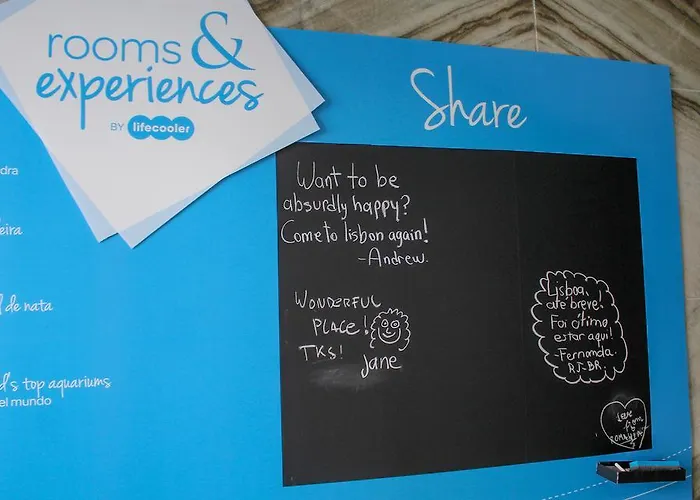 rooms &
experiences
BY lifecooler
Share
dra
eira
l de nata
d's top aquariums
el mundo
Want to be
absurdly happy?
Come to lisbon again!
-Andrew.
WONDERFUL
PLACE!
TKS!
Jane
Lisboa,
até breve!
Foi ótimo
estar aqui!
-Fernanda.
RJ-BR.
Love
from
ROMANIA